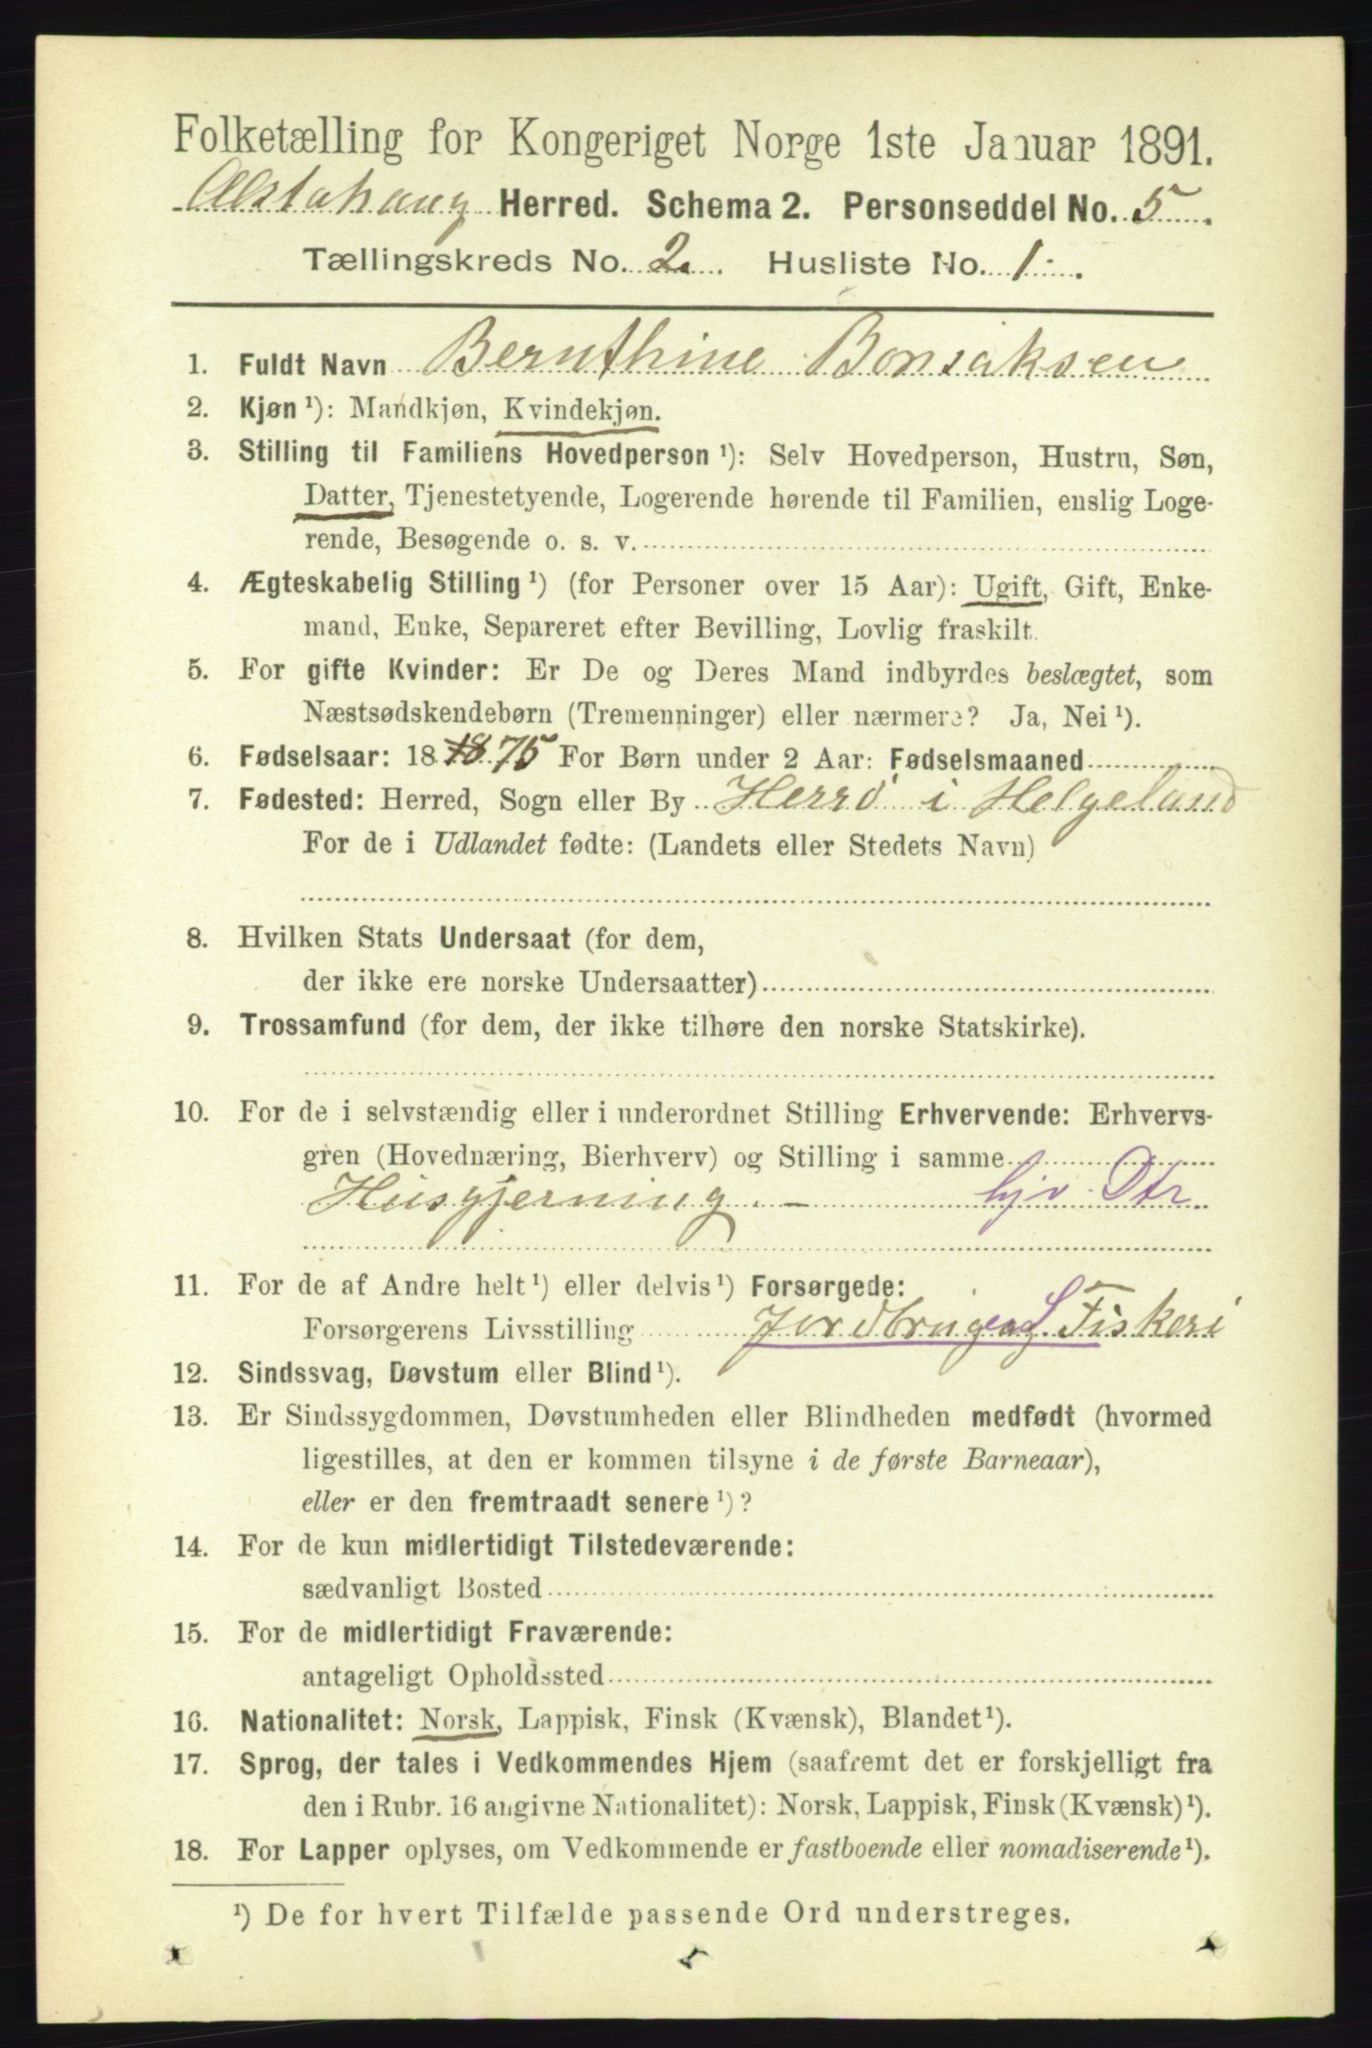 Folketælling for Kongeriget Norge 1ste Januar 1891.
Alstahaug Herred. Schema 2. Personseddel No. 5
Tællingskreds No. 2. Husliste No. 1.
1. Fuldt Navn Bernthine Bonsaksen
2. Kjøn ¹): Mandkjøn, Kvindekjøn.
3. Stilling til Familiens Hovedperson ¹): Selv Hovedperson, Hustru, Søn,
Datter, Tjenestetyende, Logerende hørende til Familien, enslig Loge-
rende, Besøgende o. s. v.
4. Ægteskabelig Stilling ¹) (for Personer over 15 Aar): Ugift, Gift, Enke-
mand, Enke, Separeret efter Bevilling, Lovlig fraskilt.
5. For gifte Kvinder: Er De og Deres Mand indbyrdes beslægtet, som
Næstsødskendebørn (Tremenninger) eller nærmere? Ja, Nei ¹).
6. Fødselsaar: 18 18 75 For Børn under 2 Aar: Fødselsmaaned
7. Fødested: Herred, Sogn eller By Herrø i Helgeland
For de i Udlandet fødte: (Landets eller Stedets Navn)
8. Hvilken Stats Undersaat (for dem,
der ikke ere norske Undersaatter)
9. Trossamfund (for dem, der ikke tilhøre den norske Statskirke).
10. For de i selvstændig eller i underordnet Stilling Erhvervende: Erhvervs-
gren (Hovednæring, Bierhverv) og Stilling i samme
Husgjerning. — hjv. Dtr
11. For de af Andre helt ¹) eller delvis ¹) Forsørgede:
Forsørgerens Livsstilling Jordbrug og S. Fiskeri
12. Sindssvag, Døvstum eller Blind ¹).
13. Er Sindssygdommen, Døvstumheden eller Blindheden medfødt (hvormed
ligestilles, at den er kommen tilsyne i de første Barneaar),
eller er den fremtraadt senere ¹)?
14. For de kun midlertidigt Tilstedeværende:
sædvanligt Bosted
15. For de midlertidigt Fraværende:
antageligt Opholdssted
16. Nationalitet: Norsk, Lappisk, Finsk (Kvænsk), Blandet ¹).
17. Sprog, der tales i Vedkommendes Hjem (saafremt det er forskjelligt fra
den i Rubr. 16 angivne Nationalitet): Norsk, Lappisk, Finsk (Kvænsk) ¹).
18. For Lapper oplyses, om Vedkommende er fastboende eller nomadiserende ¹).
¹) De for hvert Tilfælde passende Ord understreges.